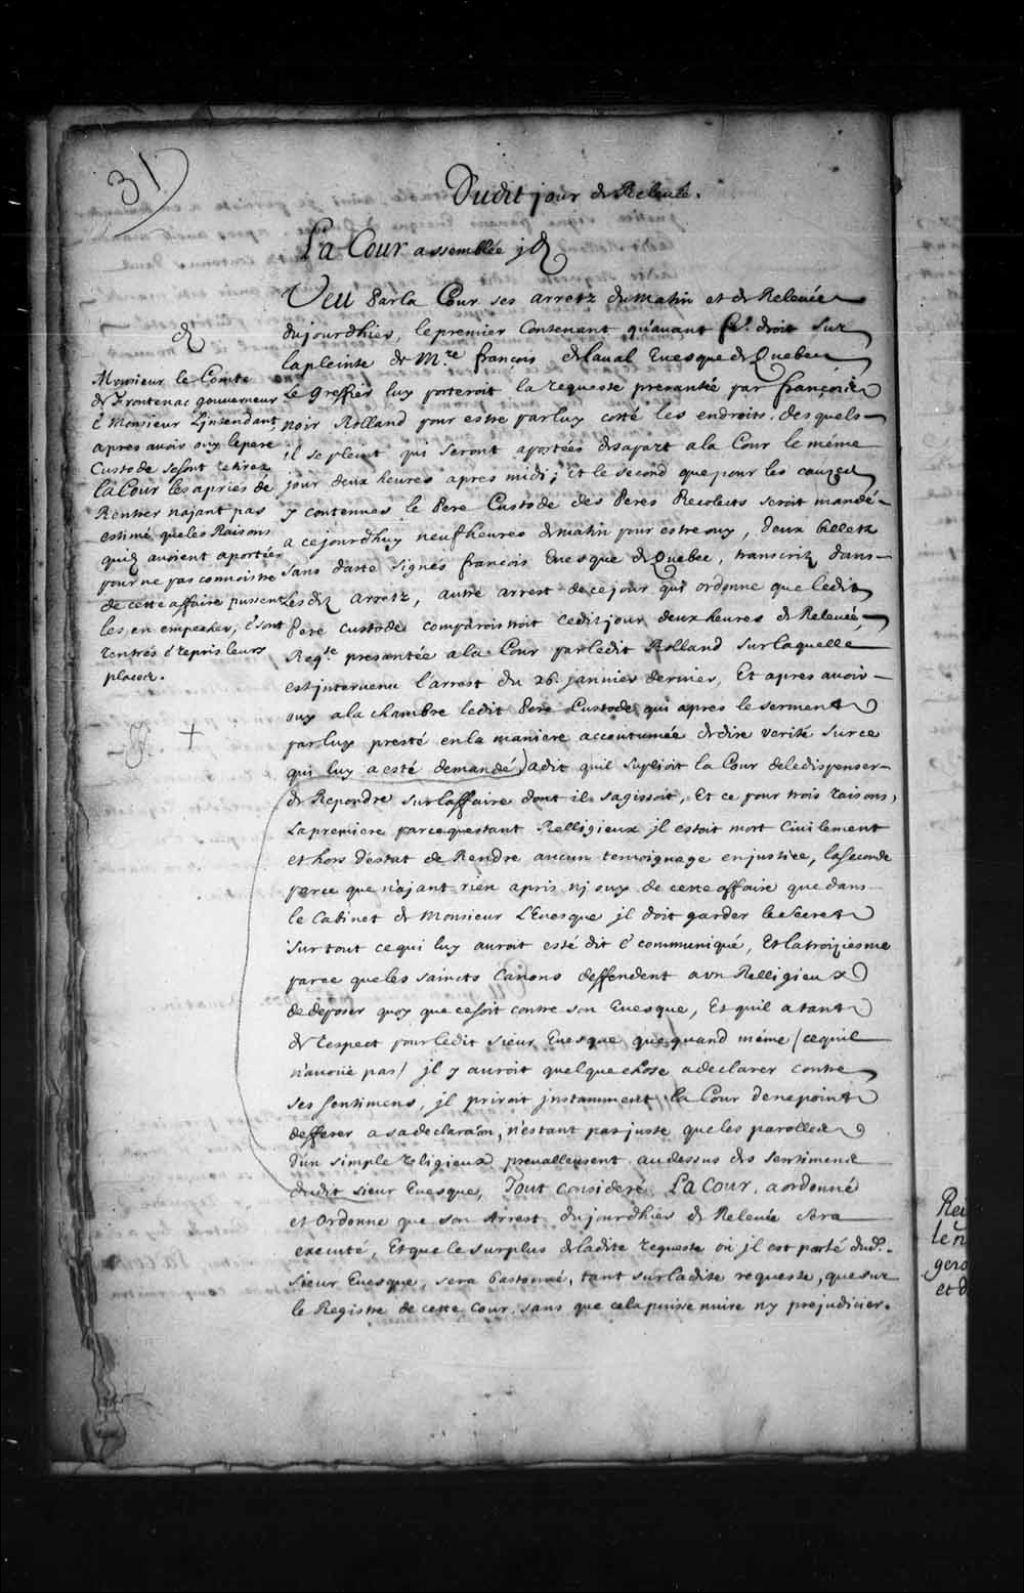 31
Dudit jour de Releuée.
La Cour assemblée
Veu Par la Cour ses arretz du matin et de Releuée
du jourdhier, le premier Contenant qu'auant f.e droit sur
la pleinte de M.re françois de laual Euesque de Quebec
Le Greffier luy porteroit la requeste presantée par françois
noir Rolland pour estre par luy cotté les endroits desquels
il se pleint qui seront aportées disapart a la Cour le méme
jour deux heures apres midi; et le second que pour les causes
y contenues le Pere Custode des Peres Recolects seroit mandé
a cejourdhuy neuf heures du matin pour estre ouy, deux billetz
sans datte signés françois Euesque de Quebec, transcritz dans
lesdz arretz, autre arrest de ce jour qui ordonne que ledit
Pere Custode comparoistroit ceditjour deux heures de Releuée,
Reqte presentée a la Cour par ledit Rolland sur laquelle
est interuenu l'arrest du 26. januier dernier, Et apres auoir
ouy a la chambre ledit Pere Custode, qui apres le serment
par luy presté en la maniere accoutumée de dire verité sur ce
qui luy a esté demandé, adit quil suplioit la Cour de le dispenser
de Repondre sur laffaire dont il sagissoit, Et ce pour trois raisons,
La premiere parcequestant Relligieux jl estoit mort Ciuilement
et hors d'estat de Rendre aucun temoignage en justice, la seconde
parce que n'ajant rien apris nj ouy de cette affaire que dans
le Cabinet de Monsieur L'Euesque jl doit garder le secret
sur tout ce qui luy auroit esté dit & communiqué, Et la troiziesme
parce que les saincts Canons deffendent a vn Relligieux
de deposer quoy que ce soit contre son Euesque, Et quil a tant
de respect pour ledit sieur Euesque que quand méme /cequil
n'auoüe pas/ jl y auroit quelque chose a declarer contre
ses sentimens, jl priroit jnstamment la Cour de ne point
defferer a sa declaraõn, n'estant pas juste que les parolles
d'un simple religieux preuallussent au dessus des sentimens
dudit sieur Euesque, Tout consideré La Cour a ordonné
et Ordonne que son Arrest du jourdhier de Releuée sera
executé, Et que le surplus de ladite requeste où jl est parlé dud.
sieur Euesque, sera bastonné, tant sur ladite requeste, que sur
le Registre de cette Cour, sans que cela puisse nuire ny prejudicier.
Monsieur le Comte
de Frontenac gouuerneur
& Monsieur L'jntendant
apres auoir ouy le pere
Custode se sont retirez
la Cour les a priés de
Rentrer n'ajant pas
estimé que les Raisons
quilz auoient aportées
pour ne pas connoistre
de cette affaire pussent
les en empescher, & sont
rentrés & repris leurs
places.